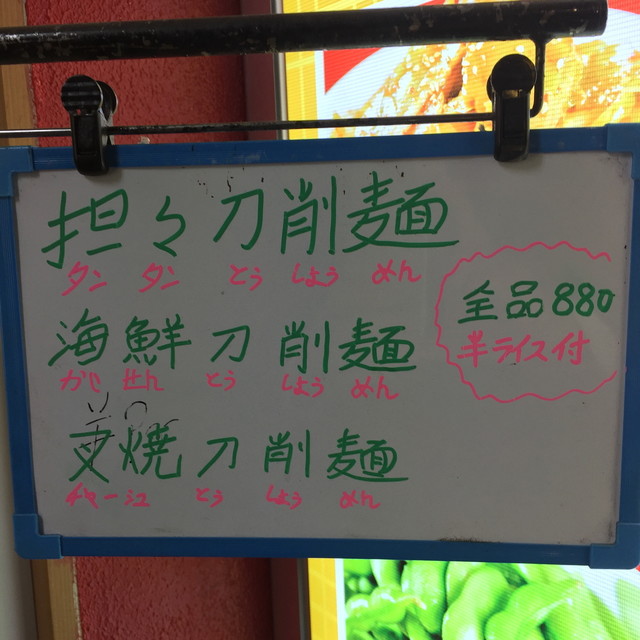 担々刀削麺
タンタンとうしょうめん
海鮮刀削麺
かいせんとうしょうめん
叉焼刀削麺
チャーシュとうしょうめん
全品880
半ライス付